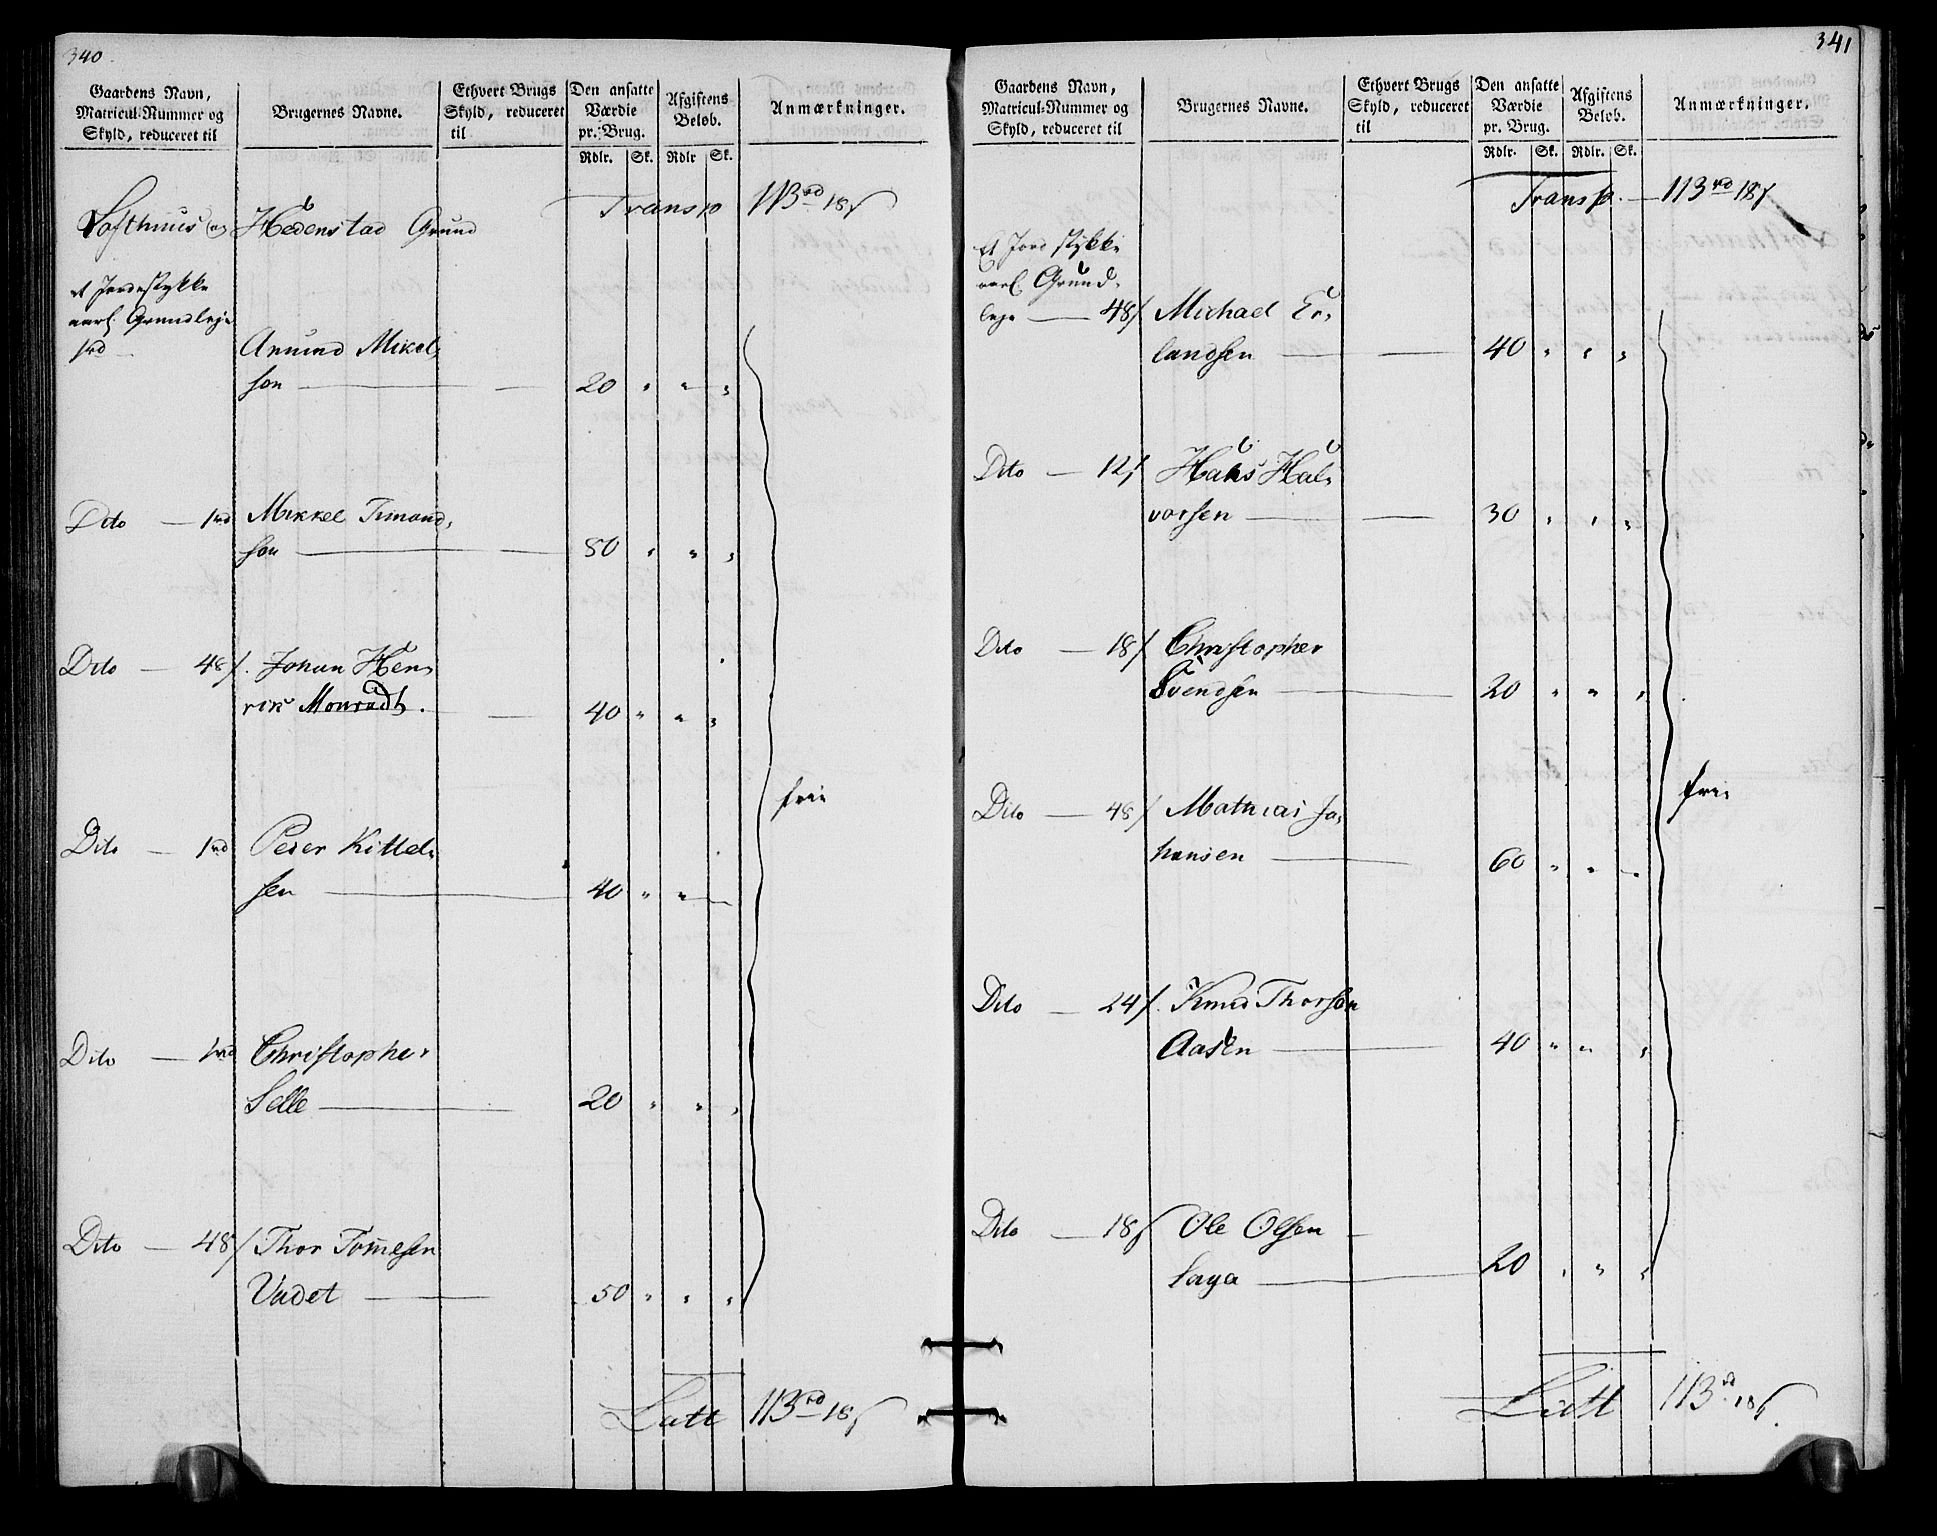 340.
Gaardens Navn,
Matricul-Nummer og
Skyld, reduceret til
Brugernes Navne.
Ethvert Brugs
Skyld, reduceret
til
Den ansatte
Værdie
pr. Brug.
Rdlr. Sk.
Afgiftens
Beløb.
Rdlr Sk.
Anmærkninger.
Transp 113 rd 18 s
Lofthuus Hedenstad Grund
et Jordestykke
aarl. Grundleje
1 rd
Anund Mikel-
son 20 " " "
Dito 1 rd Mikkel Timand-
son 50 " " "
Dito 48 s. Johan Hen-
rik Monradt. 40 " " "
frie
Dito 1 rd Peder Kittel-
sen 40 " "
Dito 1 rd Christopher
Selle 20 " " "
Dito 48 s Thor Tom̄esen
Vadet 50 " " "
Latt 113 rd 18 s
341
Gaardens Navn,
Matricul-Nummer og
Skyld, reduceret til
Brugernes Navne.
Ethvert Brugs
Skyld, reduceret
til
Den ansatte
Værdie
pr. Brug.
Rdlr. Sk.
Afgiftens
Beløb.
Rdlr. Sk.
Anmærkninger.
Transp. 113 rd 18 s
et Jord stykke
aarl Grund-
leje 48 s Michael Er-
landsen 40 " " "
Dito 12 s Hans Hal-
vorsen 30 " " "
Dito 18 s Christopher
Svendsen 20 " " "
frie
Dito 48 s Mathias Jo-
hansen 60 " "
Dito 24 s. Knud Thorson
Aasen 40 " " "
Dito 18 s Ole Olsen
Saga 20 " " "
Latt 113 rd 18 s.